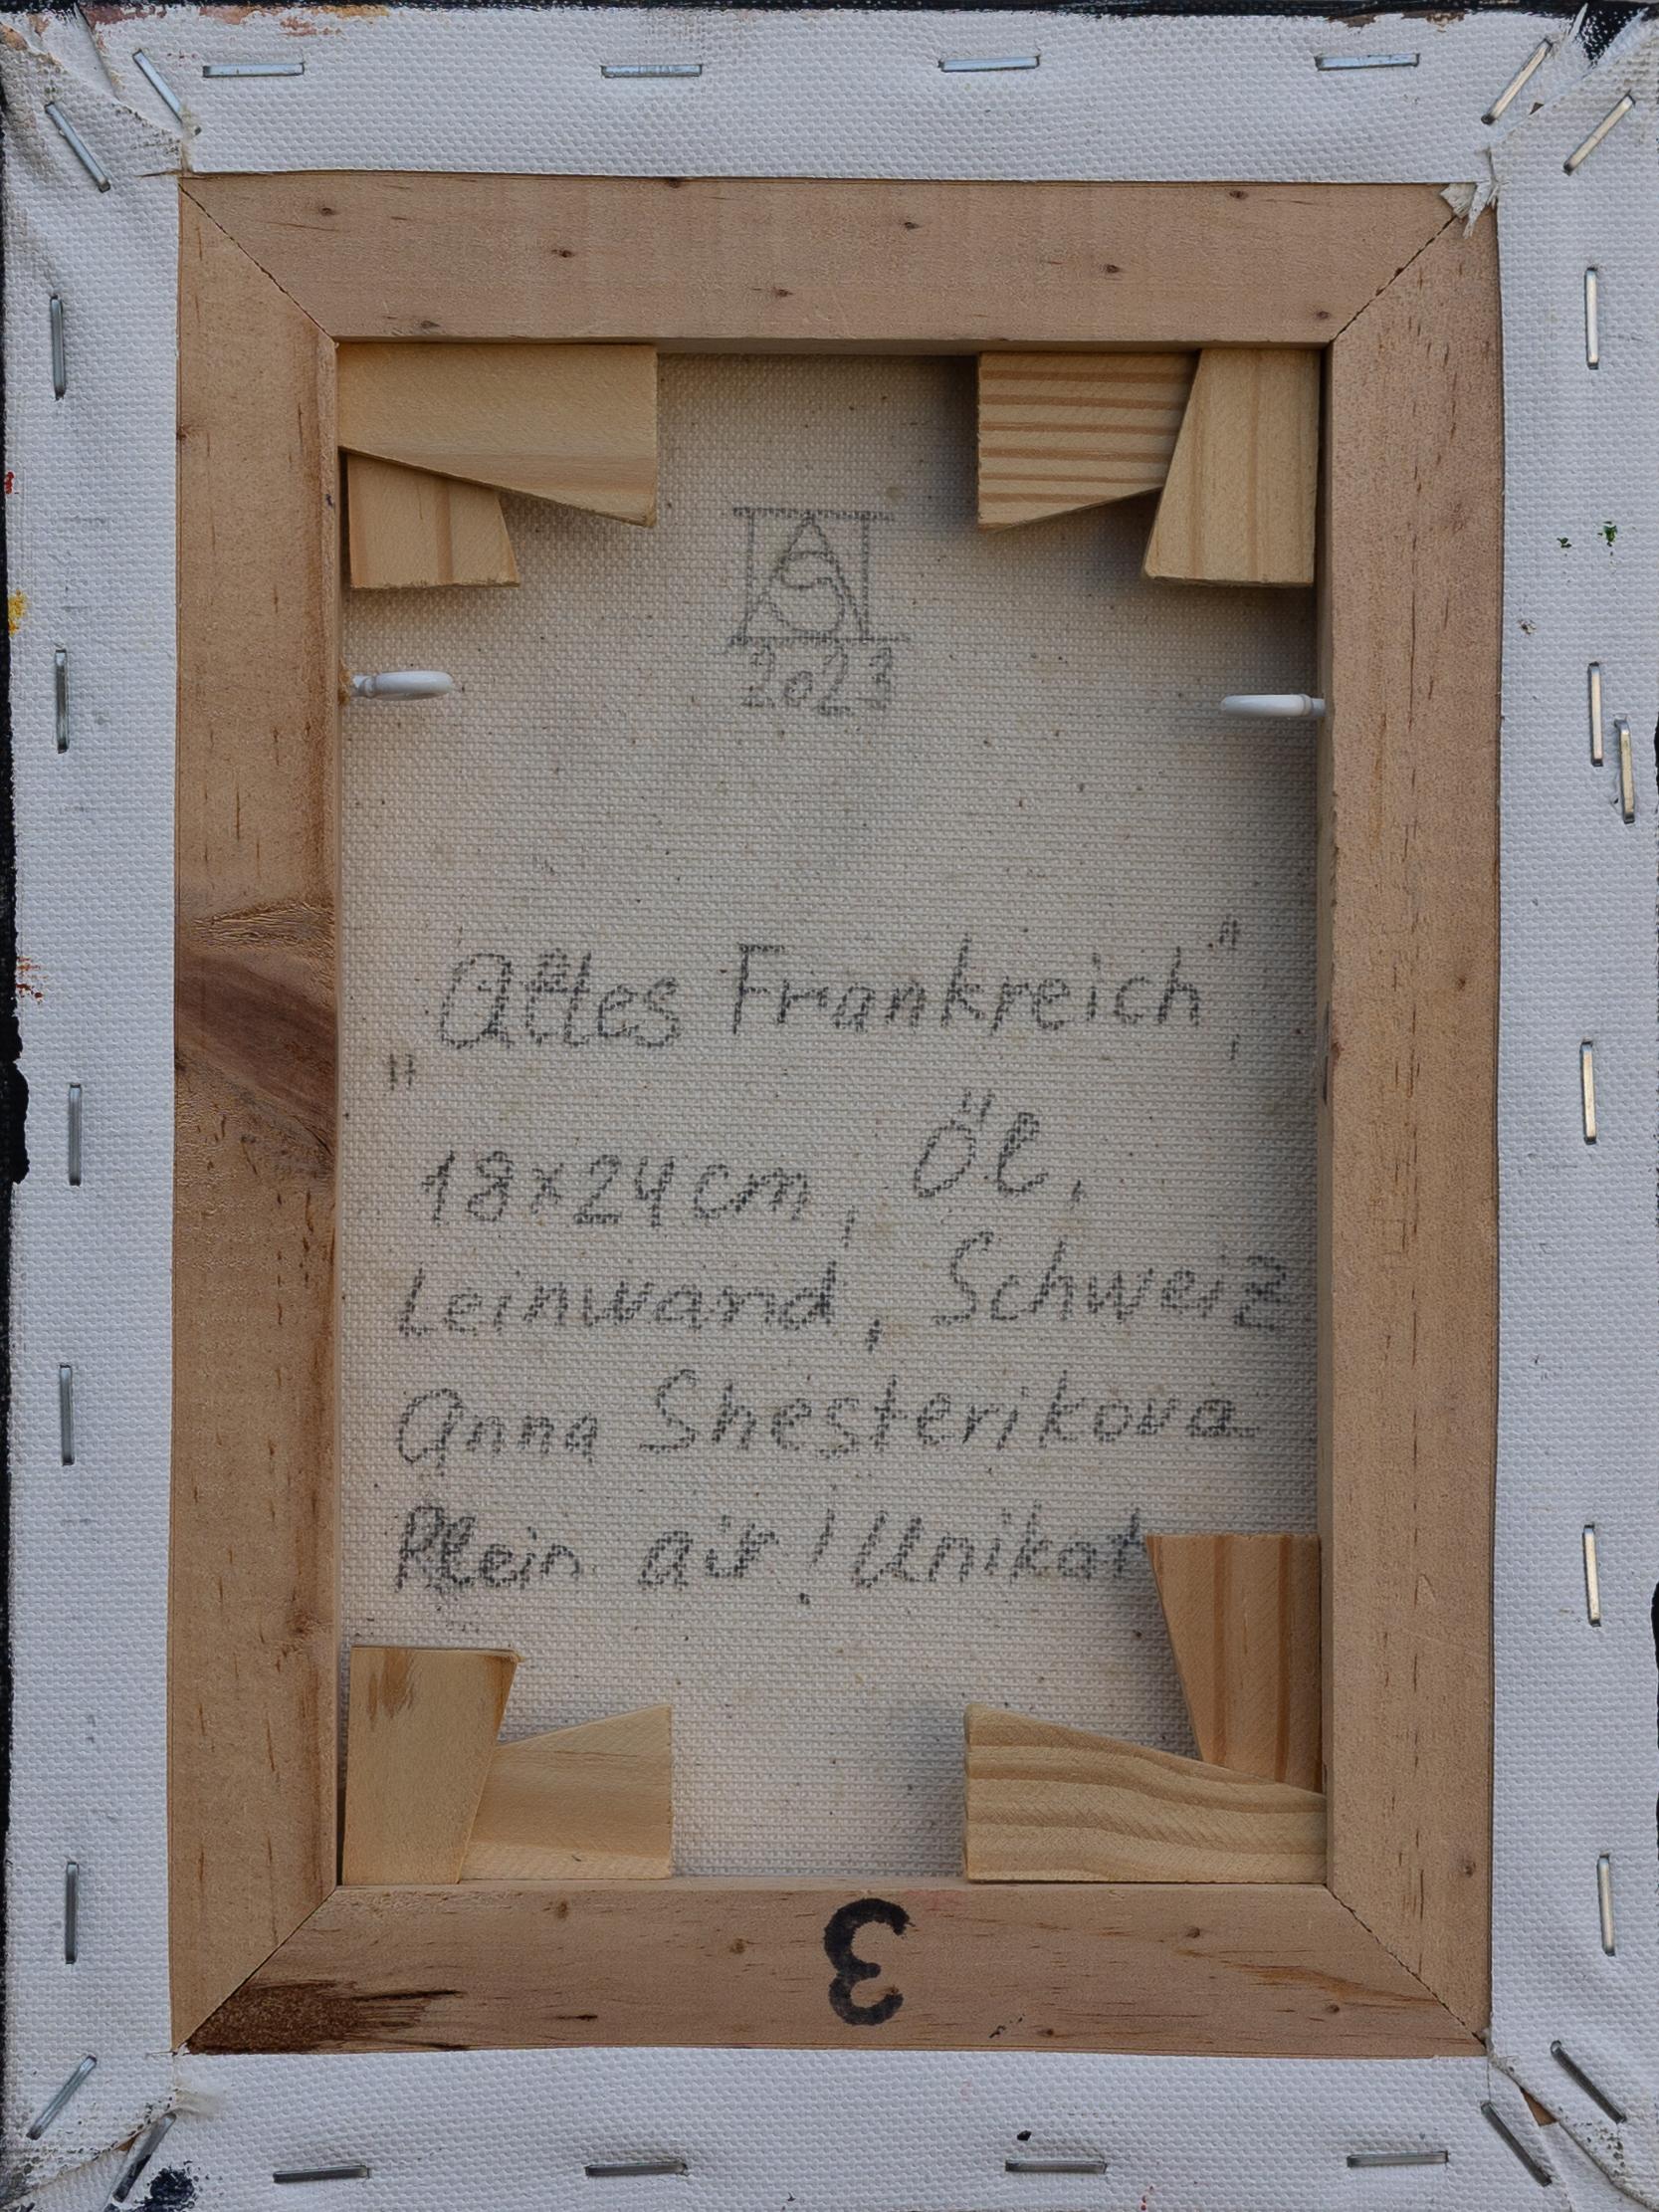 AS
2023
„Altes Frankreich",
18x24cm, Öl,
Leinwand, Schweiz
Anna Shesterikova
Plein air! Unikat
3